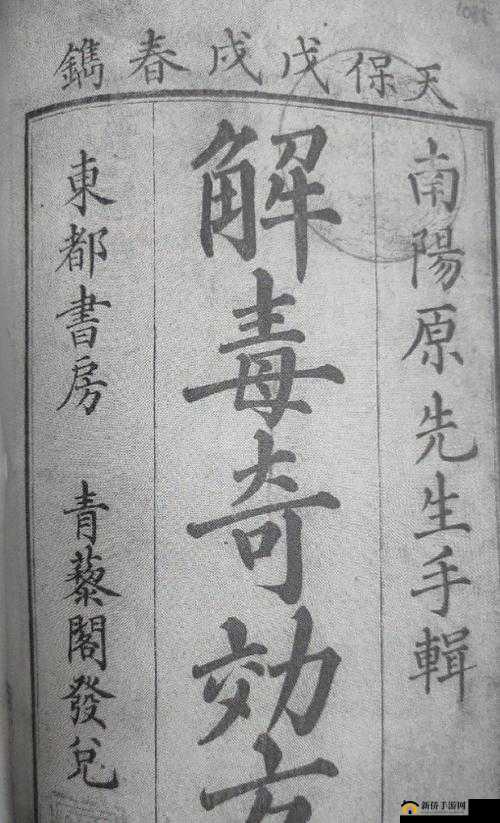 天保戊戌春鐫
南陽原先生手輯
解毒奇効方
東都書房 青藜閣發兌
新侨手游网